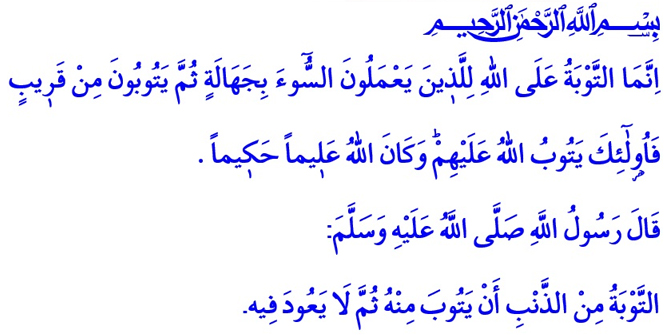 بِسْمِ اللهِ الرَّحْمٰنِ الرَّحِيمِ
اِنَّمَا التَّوْبَةُ عَلَى اللهِ لِلَّذ۪ينَ يَعْمَلُونَ السُّٓوءَ بِجَهَالَةٍ ثُمَّ يَتُوبُونَ مِنْ قَر۪يبٍ
فَاُو۬لٰٓئِكَ يَتُوبُ اللهُ عَلَيْهِمْۜ وَكَانَ اللهُ عَل۪يماً حَك۪يماً .
قَالَ رَسُولُ اللَّهِ صَلَّى اللَّهُ عَلَيْهِ وَسَلَّمَ:
التَّوْبَةُ مِنْ الذَّنْبِ أَنْ يَتُوبَ مِنْهُ ثُمَّ لَا يَعُودَ فِيهِ.